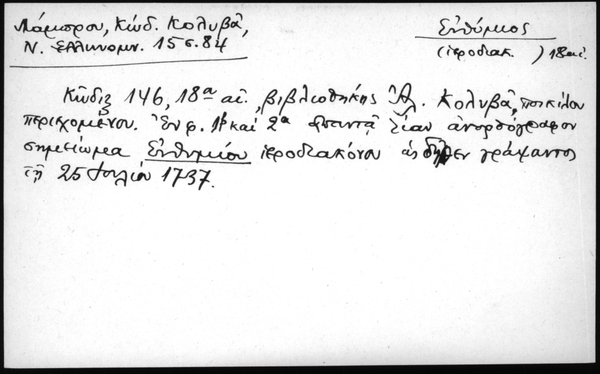 Λάμπρου, Κώδ. Κολυβᾶ,
Ν. Ἑλληνομν. 15 σ. 84
Εὐθύμιος
(ἱεροδιακ. ) 18 αἰ.
Κῶδιξ 146, 18ης αἰ., βιβλιοθήκης Ἀλ. Κολυβᾶ, ποικίλου
περιεχομένου. Ἐν φ. 1β καὶ 2α ἀπαντᾷ λίαν ἀνορθόγραφον
σημείωμα Εὐθυμίου ἱεροδιακόνου γράψαντος
τῇ 25 Ἰουλίου 1737.